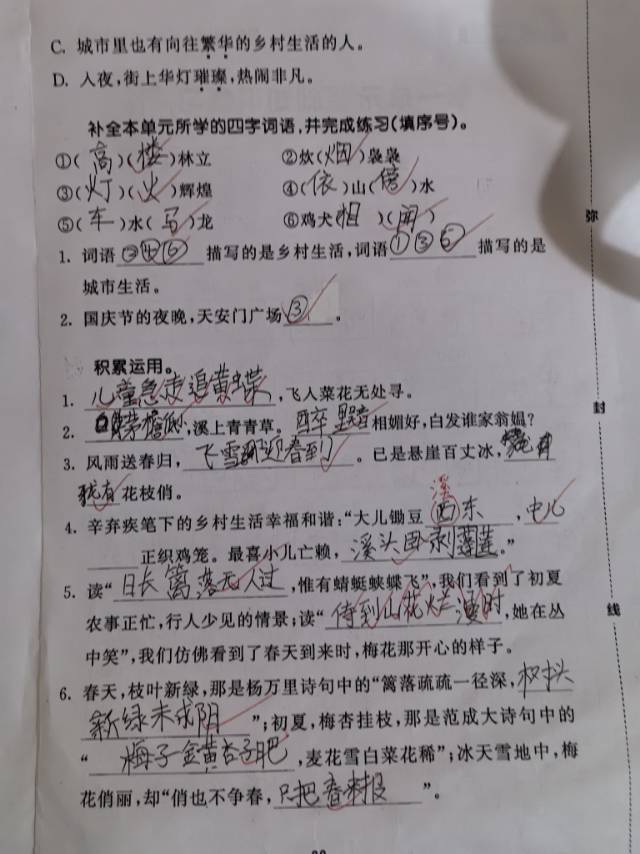 C. 城市里也有向往繁华的乡村生活的人。
D. 入夜,街上华灯璀璨,热闹非凡。
补全本单元所学的四字词语,并完成练习(填序号)。
①(高)(楼)林立 ②炊(烟)袅袅
③(灯)(火)辉煌 ④(依)山(傍)水
⑤(车)水(马)龙 ⑥鸡犬(相)(闻)
1. 词语②④⑥描写的是乡村生活,词语①③⑤描写的是
城市生活。
2. 国庆节的夜晚,天安门广场③。
积累运用。
1. 儿童急走追黄蝶,飞入菜花无处寻。
2. 茅檐低小,溪上青青草。醉里吴音相媚好,白发谁家翁媪?
3. 风雨送春归,飞雪迎春到。已是悬崖百丈冰,
犹有花枝俏。
溪
4. 辛弃疾笔下的乡村生活幸福和谐:“大儿锄豆西东,中儿
正织鸡笼。最喜小儿亡赖,溪头卧剥莲蓬。”
5. 读“日长篱落无人过,惟有蜻蜓蛱蝶飞”,我们看到了初夏
农事正忙,行人少见的情景;读“待到山花烂漫时,她在丛
中笑”,我们仿佛看到了春天到来时,梅花那开心的样子。
6. 春天,枝叶新绿,那是杨万里诗句中的“篱落疏疏一径深,树头
新绿未成阴”;初夏,梅杏挂枝,那是范成大诗句中的
“梅子金黄杏子肥,麦花雪白菜花稀”;冰天雪地中,梅
花俏丽,却“俏也不争春,只把春来报”。
弥
封
线